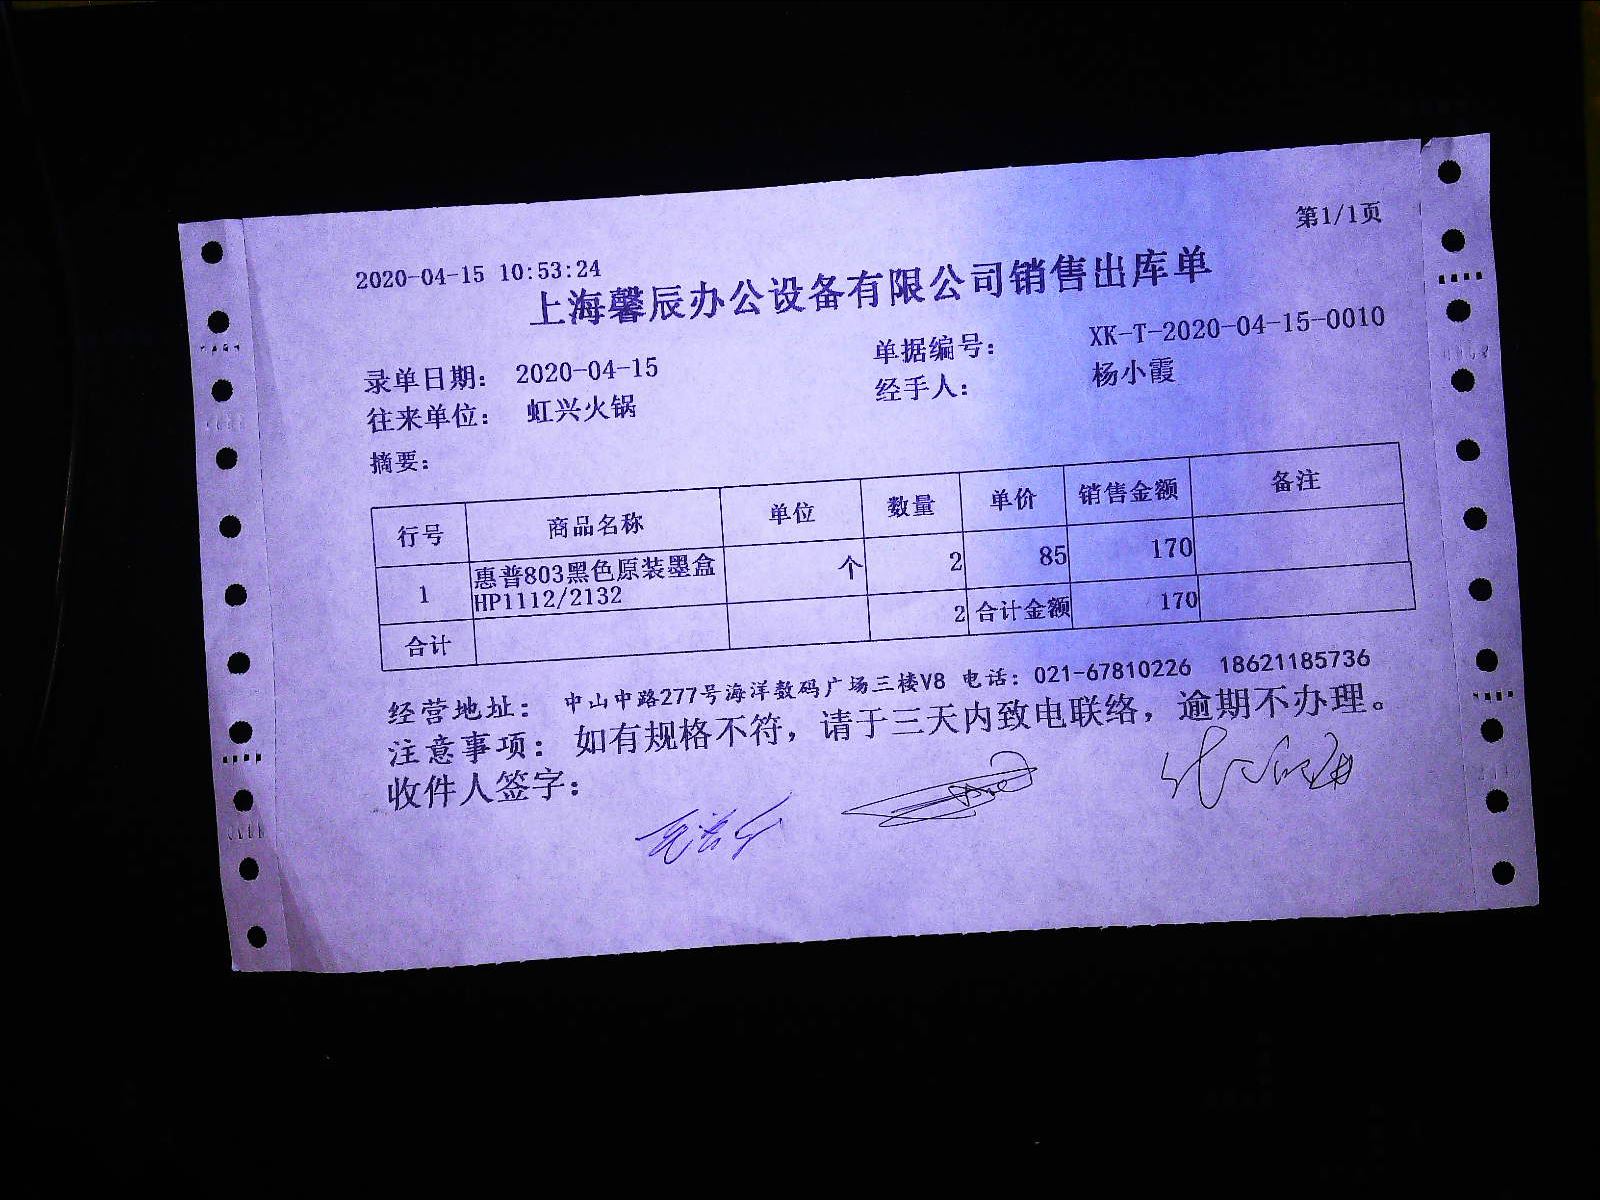 第1/1页
2020-04-15 10:53:24
上海馨辰办公设备有限公司销售出库单
录单日期： 2020-04-15 单据编号： XK-T-2020-04-15-0010
往来单位： 虹兴火锅 经手人： 杨小霞
摘要：
行号 商品名称 单位 数量 单价 销售金额 备注
1 惠普803黑色原装墨盒 个 2 85 170
HP1112/2132
合计 2 合计金额 170
经营地址： 中山中路277号海洋数码广场三楼V8 电话：021-67810226 18621185736
注意事项： 如有规格不符，请于三天内致电联络，逾期不办理。
收件人签字：